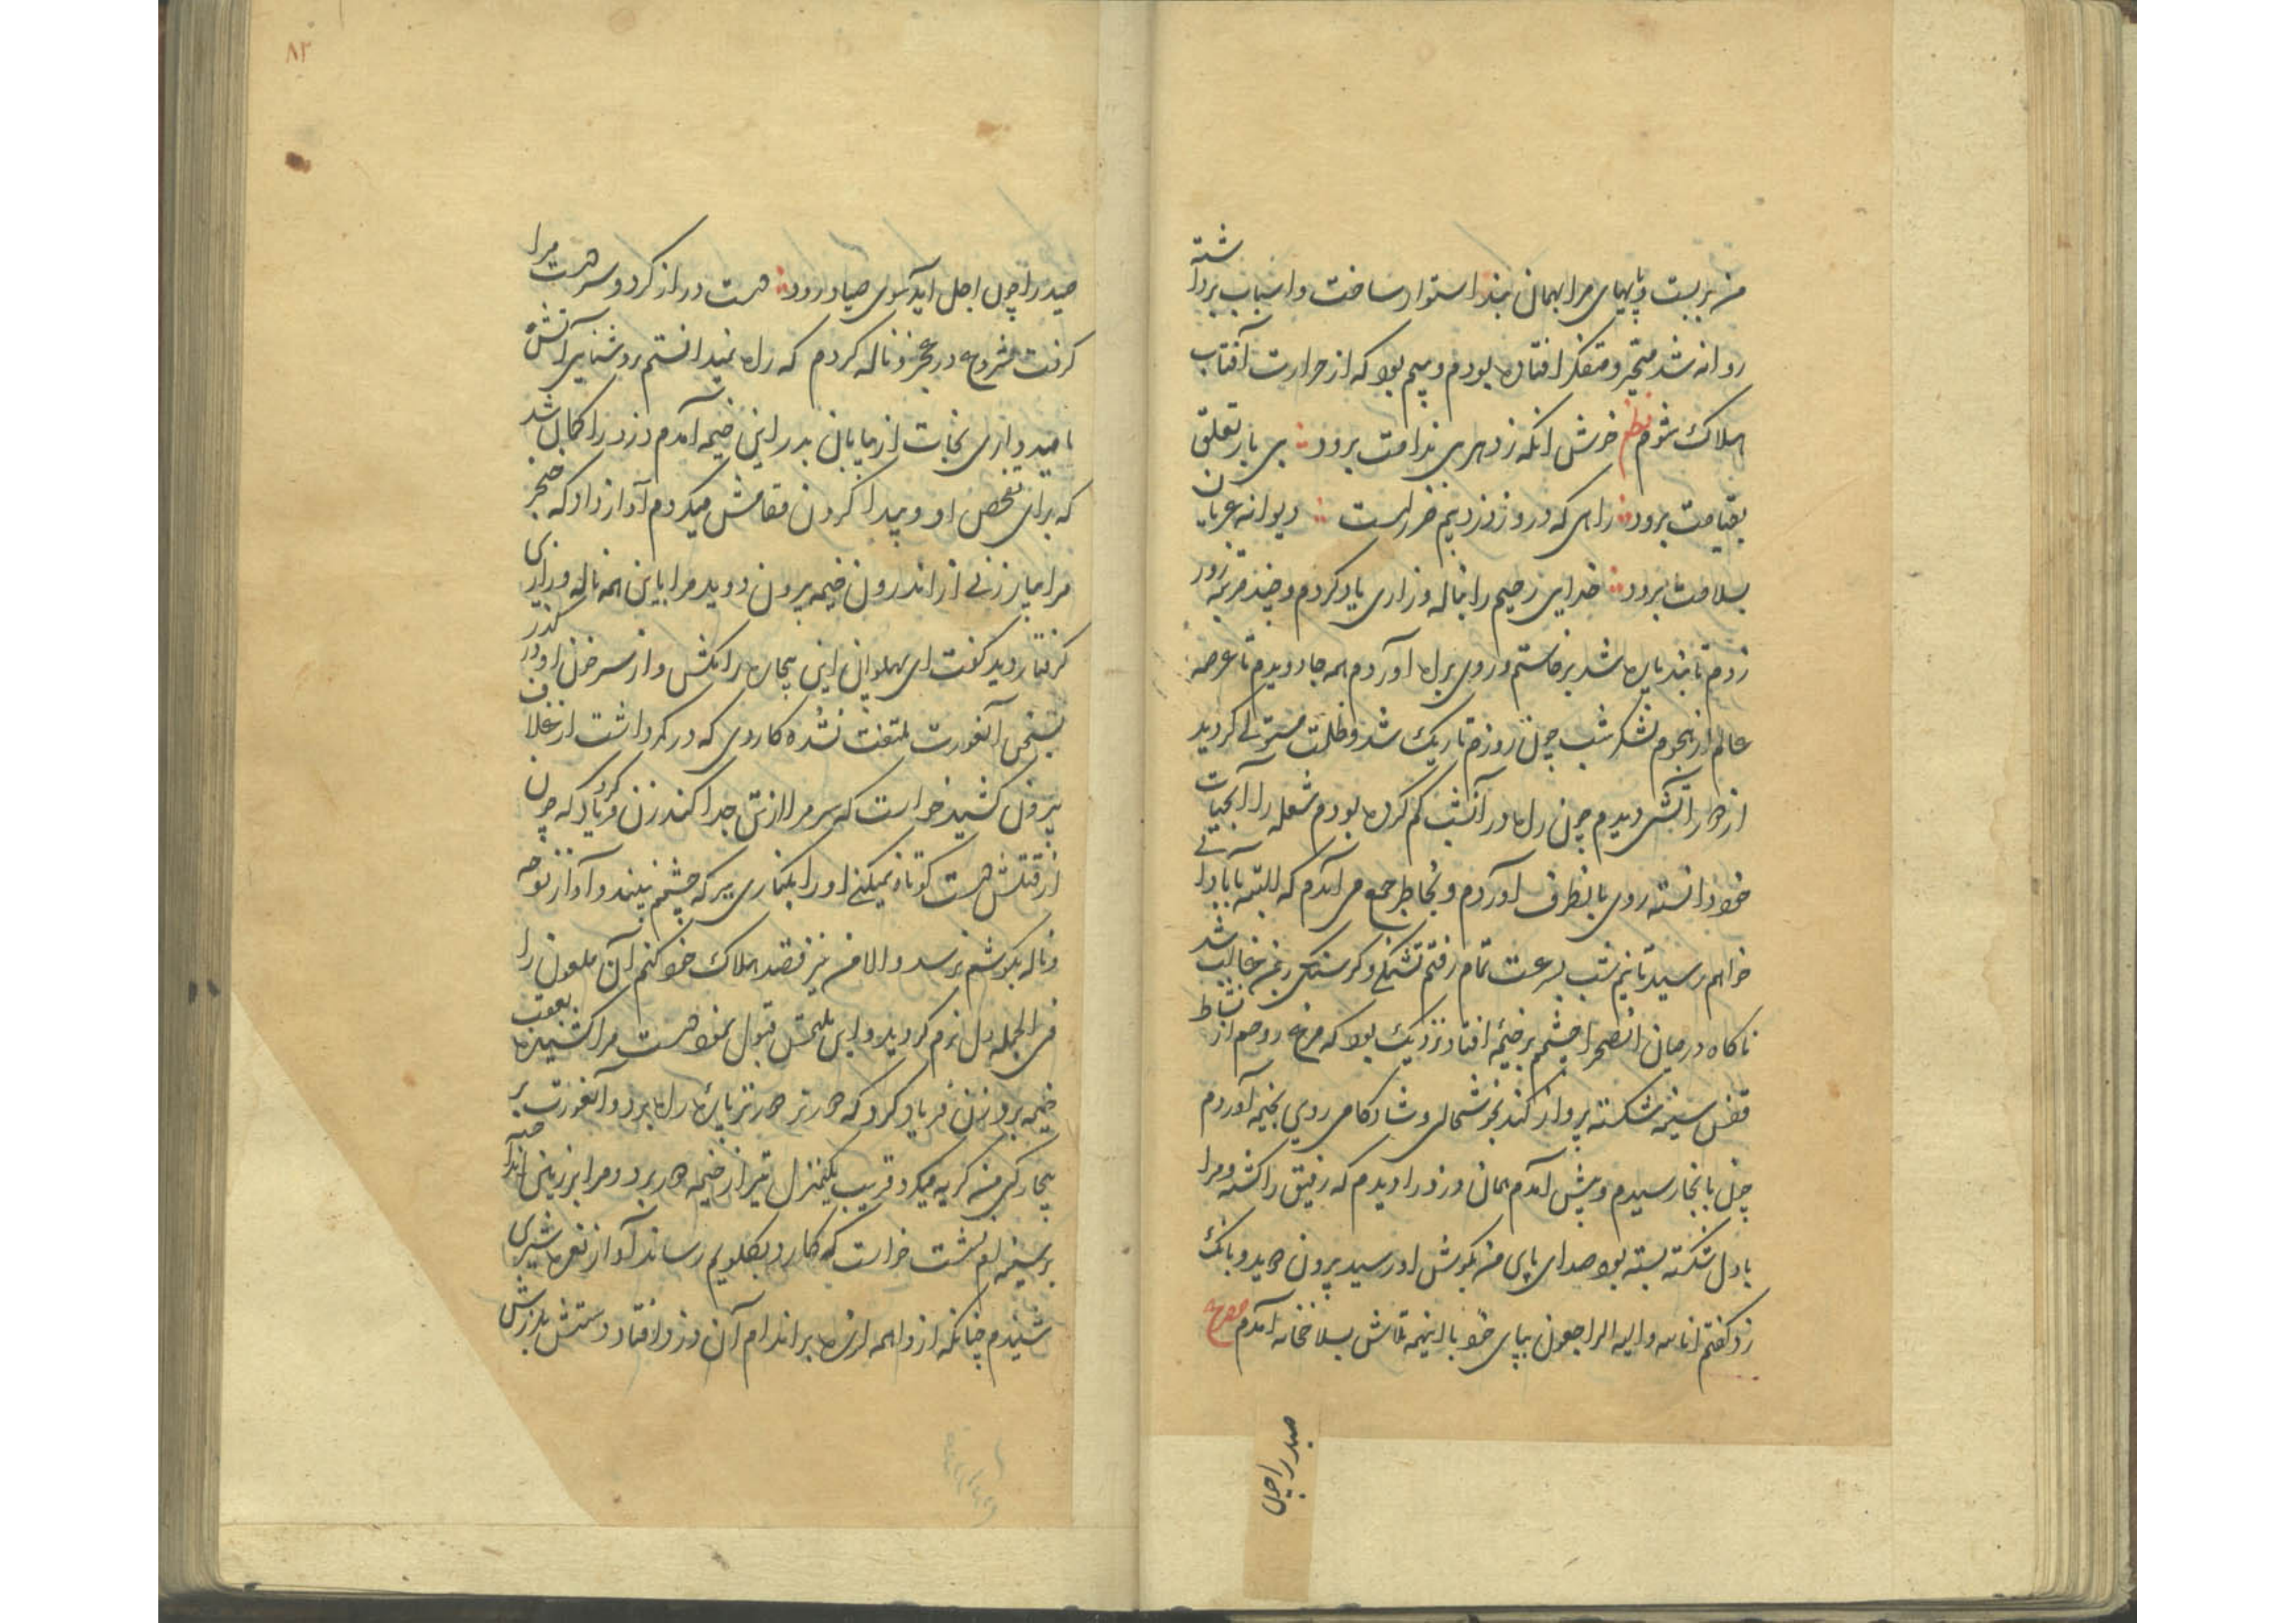 من بربست و پایهای مرا بهمان بند استوار ساخت و اسباب برداشته
روانه شد متحیر و متفکر افتاده بودم و بیم بود که از حرارت آفتاب
هلاک شوم نظم خوش آنکه ز دهر بی ندامت برود بی بار تعلق
بقیامت برود راهی که درو ز دزد بیم خطر است دیوانه عریان
بسلامت برود خدای رحیم را بناله و زاری یاد کردم و چند مرتبه زور
زدم تا بند پاره شد برخاستم و روی براه آوردم همه جا دویدم تا عرصه
عالم از هجوم لشکر شب چون روزم تاریک شد و ظلمت مستولی گردید
از دور آتشی دیدم چون راه در آنشب گم کرده بودم شعله را آبحیات
خود دانسته روی بانطرف آوردم و بخاطر جمع می آمدم که البته بآبادانی
خواهم رسید تا نیم شب بسرعت تمام رفتم تشنگی و گرسنگی بر من غالب شد
ناکاه درمیان انصحرا چشمم بر خیمهٔ افتاد نزدیک بود که مرغ روحم از نشاط
قفس سینه شکسته پرواز کند بخوشحالی و شادکامی روی بخیمه آوردم
چون بانجا رسیدم و پیش آمدم همان دزد را دیدم که رفیق را کشته و مرا
با دل شکسته بسته بود صدای پای من بکوش او رسید بیرون دوید و بانک
زد گفتم انا لله و الیه الراجعون بپای خود با اینهمه تلاش بسلاخخانه آمدم مصرع
صید را چون
۸۳
صید را چون اجل آید سوی صیاد رود دست دراز کرد و سر دست مرا
گرفت شروع در عجز و ناله کردم که راه نمیدانستم بروشنایی آتش
بامیدواری نجات از بیابان بدر این خیمه آمدم دزد را کمان شد
که برای تفحص او و پیدا کردن مقامش میکردم آواز داد که خنجر
مرا بیار زنی از اندرون خیمه بیرون دوید مرا باین همه ناله و زاری
گرفتار دید گفت ای پهلوان این بیچاره را مکش و از سر خون او در گذر
بسخن آنعورت ملتفت نشده کاردی که در کمر داشت از غلاف
بیرون کشید خواست که سر مرا از تن جدا کند زن فریاد کرد که چون
از قتلش دست کوتاه نمیکنی او را بکناری ببر که چشمم نبیند و آواز نوحه
و ناله بگوشم نرسد و الا من نیز قصد هلاک خود کنم آن ملعون را
فی الجمله دل نرم گردید و این ملتمس قبول نمود دست مرا کشیده بعقب
خیمه برد زن فریاد کرد که دورتر دورتر پارهٔ راه برد و آنعورت بر
بیچارگی من گریه میکرد قریب یکمنزل تیر از خیمه دور برد و مرا بر زمین انداخته
بر سینه ام نشست خواست که کارد بگلویم رساند آواز نعره شیری
شنیدم چنانکه از واهمه لرزه بر اندام آن دزد افتاد و دستش بلرزش